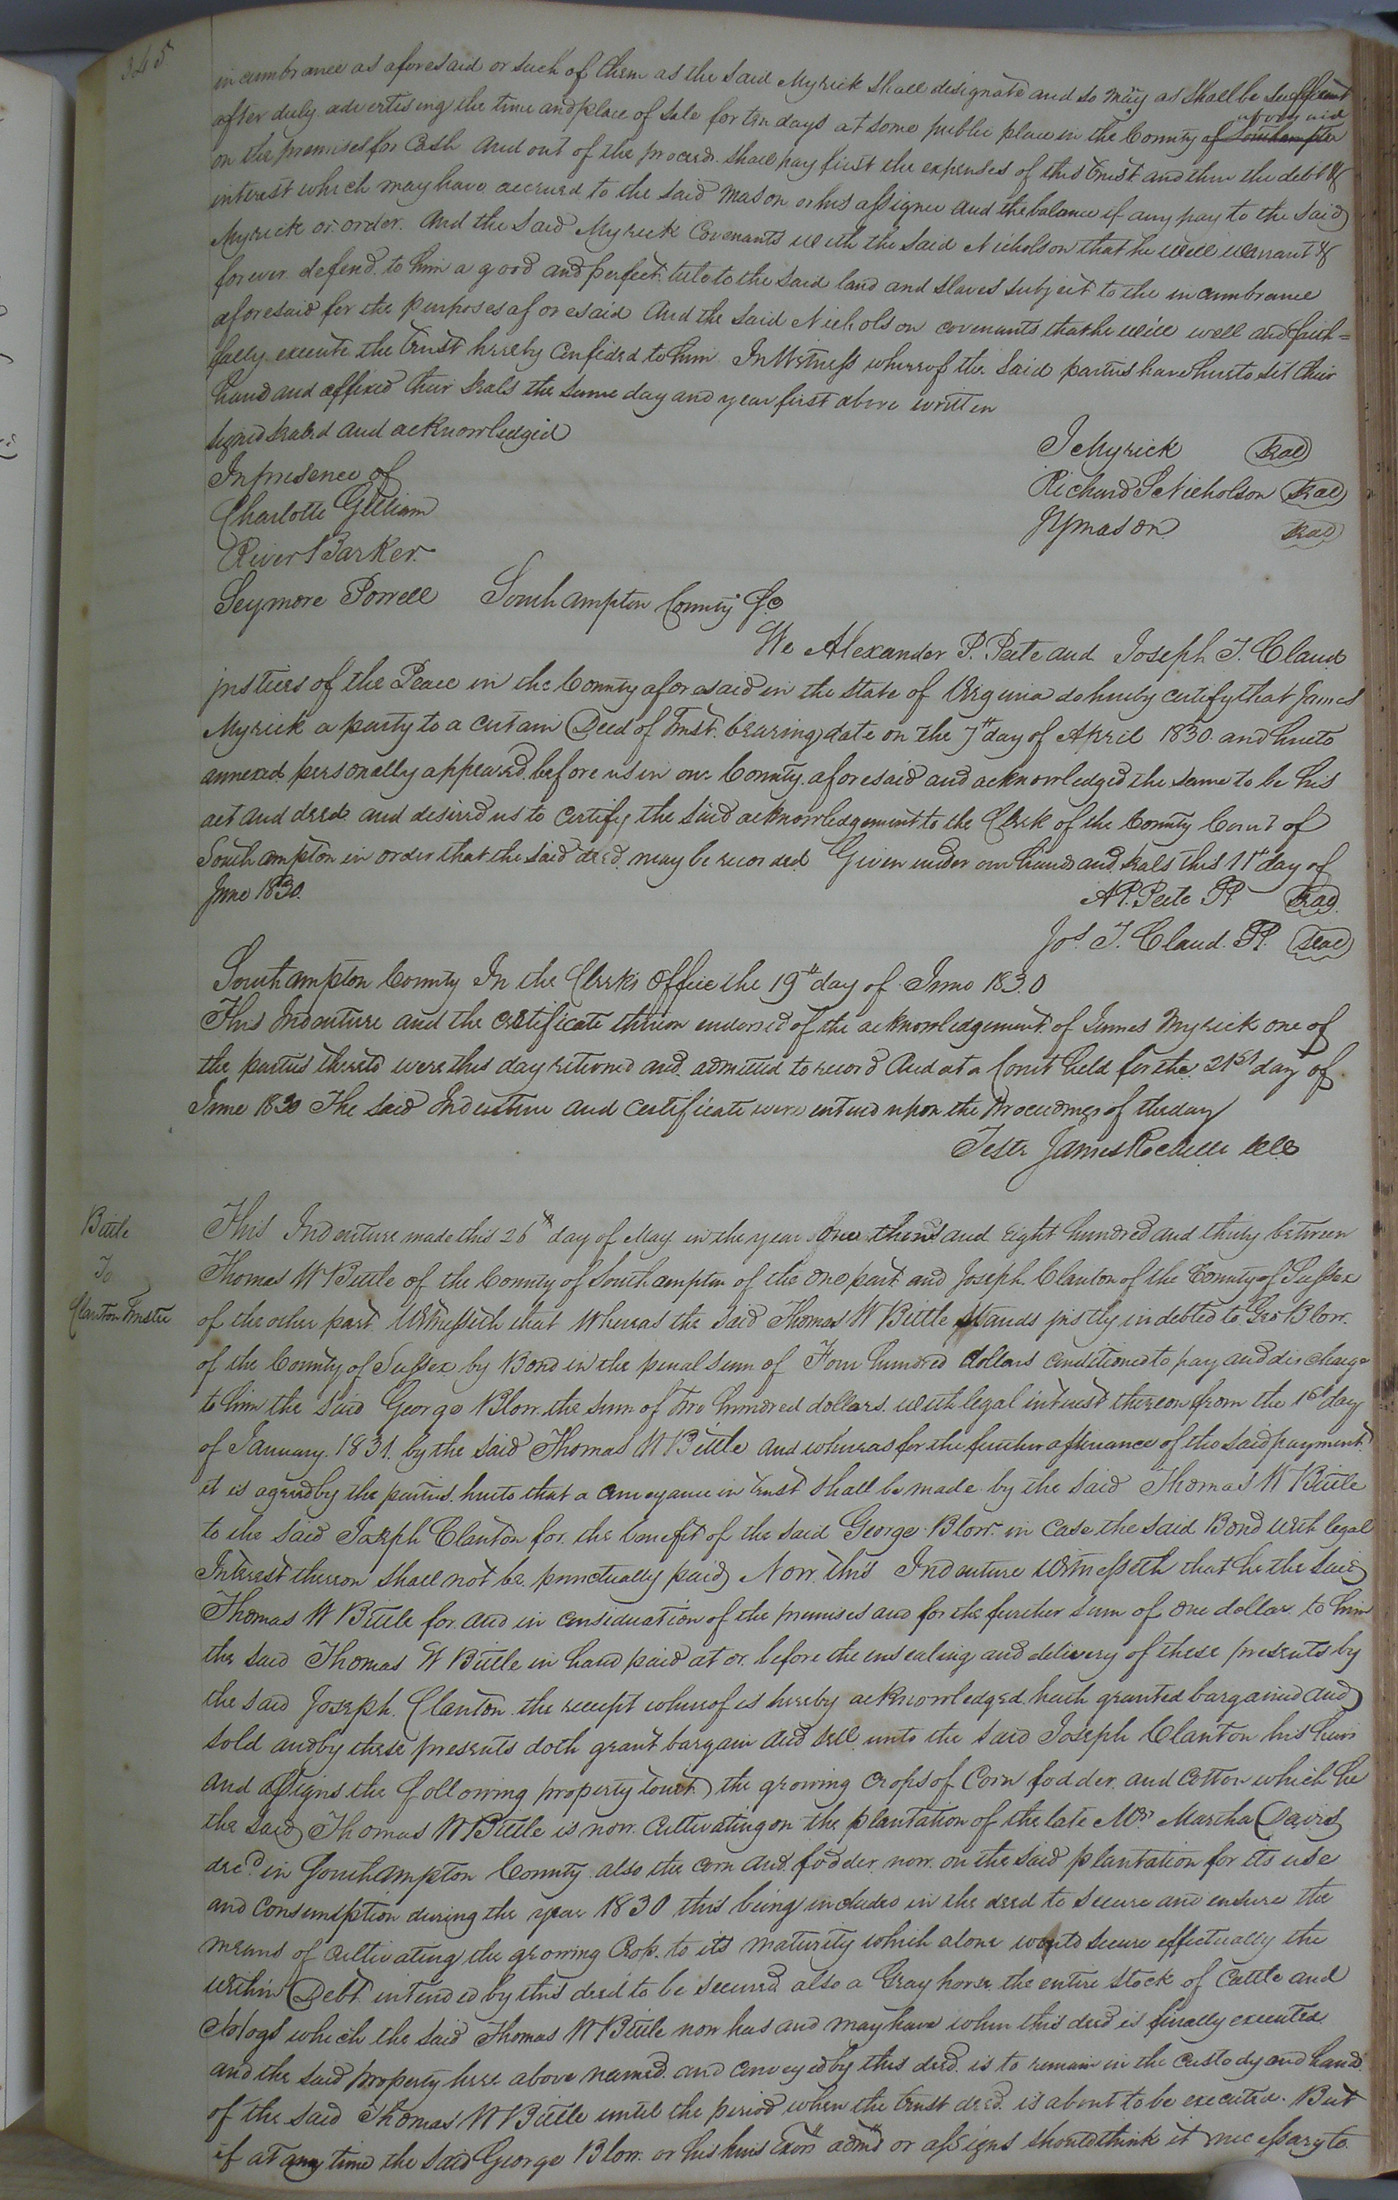 345
incumbrance as aforesaid or such of them as the said Myrick shall designate and so many as shall be sufficient
after duly advertising the time and place of sale for ten days at some public place in the County of Southampton aforesaid
on the premises for Cash And out of the proceeds shall pay first the expenses of this trust and then the debt &
interest which may have accrued to the said Mason or his assignee and the balance if any pay to the said
Myrick or order. And the said Myrick Covenants with the said Nicholson that he will warrant &
forever defend to him a good and perfect title to the said land and slaves subject to the incumbrance
aforesaid for the purposes aforesaid And the said Nicholson covenants that he will well and faith=
fully execute the trust hereby confided to him In Witness whereof the said parties have hereto set their
hand and affixed their seals the same day and year first above written
signed sealed and acknowledged
In presence of
Charlotte Gilliam
River Barker
Seymore Powell
J Myrick seal
Richard S Nicholson seal
JY mason seal
Southampton County Sc
We Alexander P. Peete and Joseph T. Claud
justices of the Peace in the County aforesaid in the State of Virginia do hereby certify that James
Myrick a party to a certain Deed of Trust bearing date on the 7th day of April 1830 and hereto
annexed personally appeared before us in our County aforesaid and acknowledged the same to be his
act and deed and desired us to certify the said acknowledgement to the Clerk of the County Court of
Southampton in order that the said deed may be recorded Given under our hands and seals this 11th day of
June 1830.
A P. Peete JP seal
Jos T. Claud. JP. seal
Southampton County In the Clerk's Office the 19th day of June 1830
This Indenture and the certificate thereon endorsed of the acknowledgement of James Myrick one of
the parties thereto were this day returned and admitted to record And at a Court held for the 21st day of
June 1830 The said Indenture and certificate were entered upon the Proceedings of the day
Teste James Rochelle
Bittle
To
Clanton Trustee
This Indenture made this 26th day of May in the year One thousand eight hundred and thirty between
Thomas W Bittle of the County of Southampton of the one part and Joseph Clanton of the County of Sussex
of the other part. Witnesseth that Whereas the said Thomas W Bittle stands justly indebted to Geo Blow.
of the County of Sussex by Bond in the penal sum of Four hundred dollars conditioned to pay and discharge
to him the said George Blow the sum of two hundred dollars with legal interest thereon from the 1st day
of January 1831. by the said Thomas W Bittle and whereas for the further assurance of the said payment
it is agreed by the parties hereto that a conveyance in trust shall be made by the said Thomas W Bittle
to the said Joseph Clanton for the benefit of the said George Blow in case the said Bond with legal
Interest thereon shall not be punctually paid Now this Indenture Witnesseth that he the said
Thomas W Bittle for and in consideration of the premises and for the further sum of one dollar to him
the said Thomas W Bittle in hand paid at or before the ensealing and delivery of these presents by
the said Joseph Clanton the receipt whereof is hereby acknowledged hath granted bargained and
sold and by these presents doth grant bargain and sell unto the said Joseph Clanton his heirs
and assigns the following property towit the growing crops of Corn fodder and Cotton which he
the said Thomas W Bittle is now cultivating on the plantation of the late Mrs Martha Davis
decd in Southampton County also the corn and fodder now on the said plantation for its use
and consumption during the year 1830 this being included in the deed to secure and ensure the
means of cultivating the growing crop to its maturity which alone would secure effectually the
within Debt intended by this deed to be secured also a Gray horse the entire stock of Cattle and
Hogs which the said Thomas W Bittle now has and may have when this deed is finally executed
and the said property here above named and conveyed by this deed is to remain in the custody and hands
of the said Thomas W Bittle until the period when the trust deed is about to be executed. But
if at any time the said George Blow or his heirs Exors admrs or assigns should think it necessary to